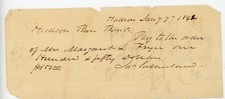 Hudson Jany 7th 18
Hudson River
Pay to the order
of Mrs Margaret L. Fryer one
Hundred & fifty Dollars
$150